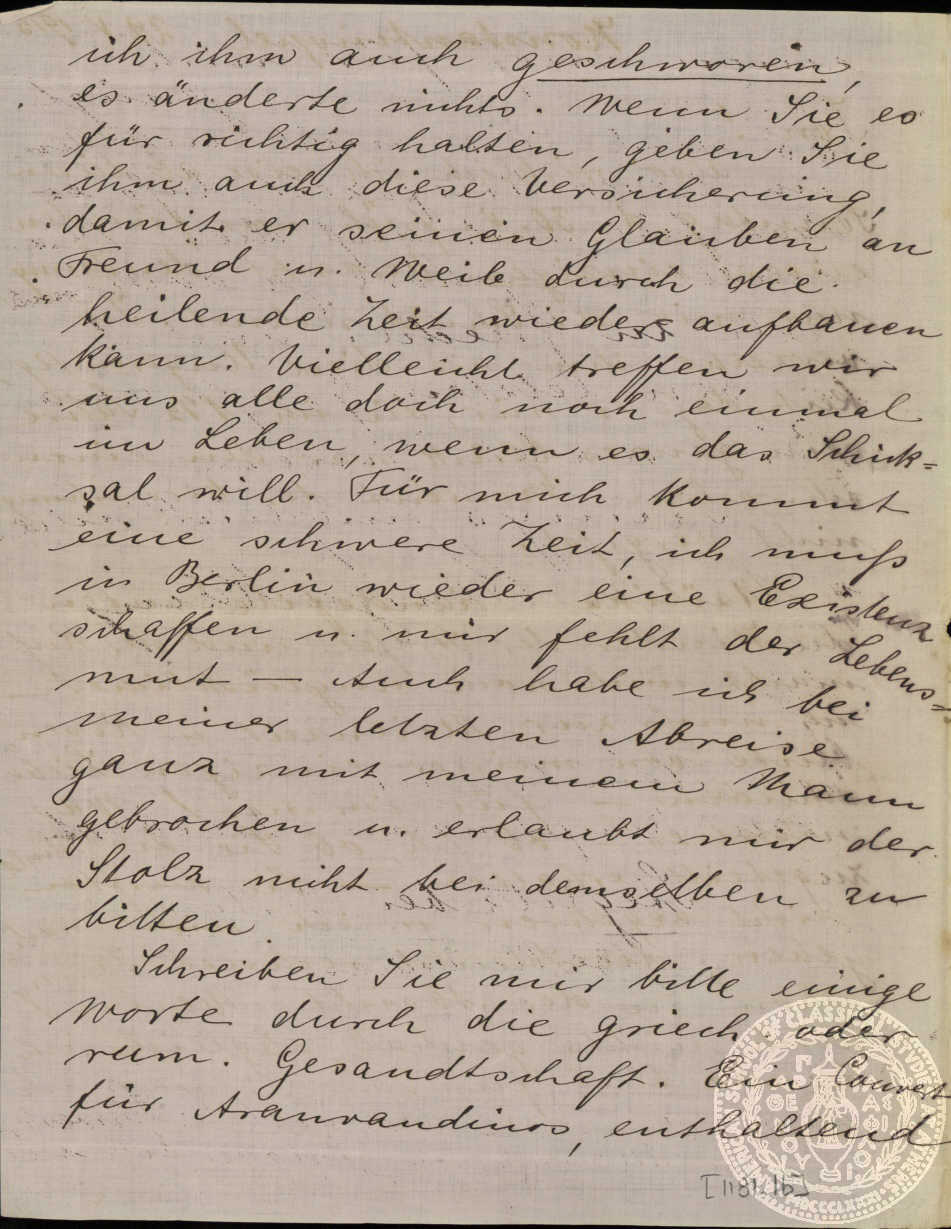 ich ihm auch geschworen,
es änderte nichts. Wenn Sie es
für richtig halten, geben Sie
ihm auch diese Versicherung,
damit er seinen Glauben an
Freund u. Weib durch die
heilende Zeit wieder aufbauen
kann. Vielleicht treffen wir
uns alle doch noch einmal
im Leben, wenn es das Schick=
sal will. Für mich kommt
eine schwere Zeit, ich muß
in Berlin wieder eine Existenz
schaffen u. mir fehlt der Lebens=
mut — Auch habe ich bei
meiner letzten Abreise
ganz mit meinem Mann
gebrochen u. erlaubt mir der
Stolz nicht bei demselben zu
bitten
Schreiben Sie mir bitte einige
Worte durch die griech. oder
rum. Gesandtschaft. Ein Couvert
für Aravandinos, enthaltend